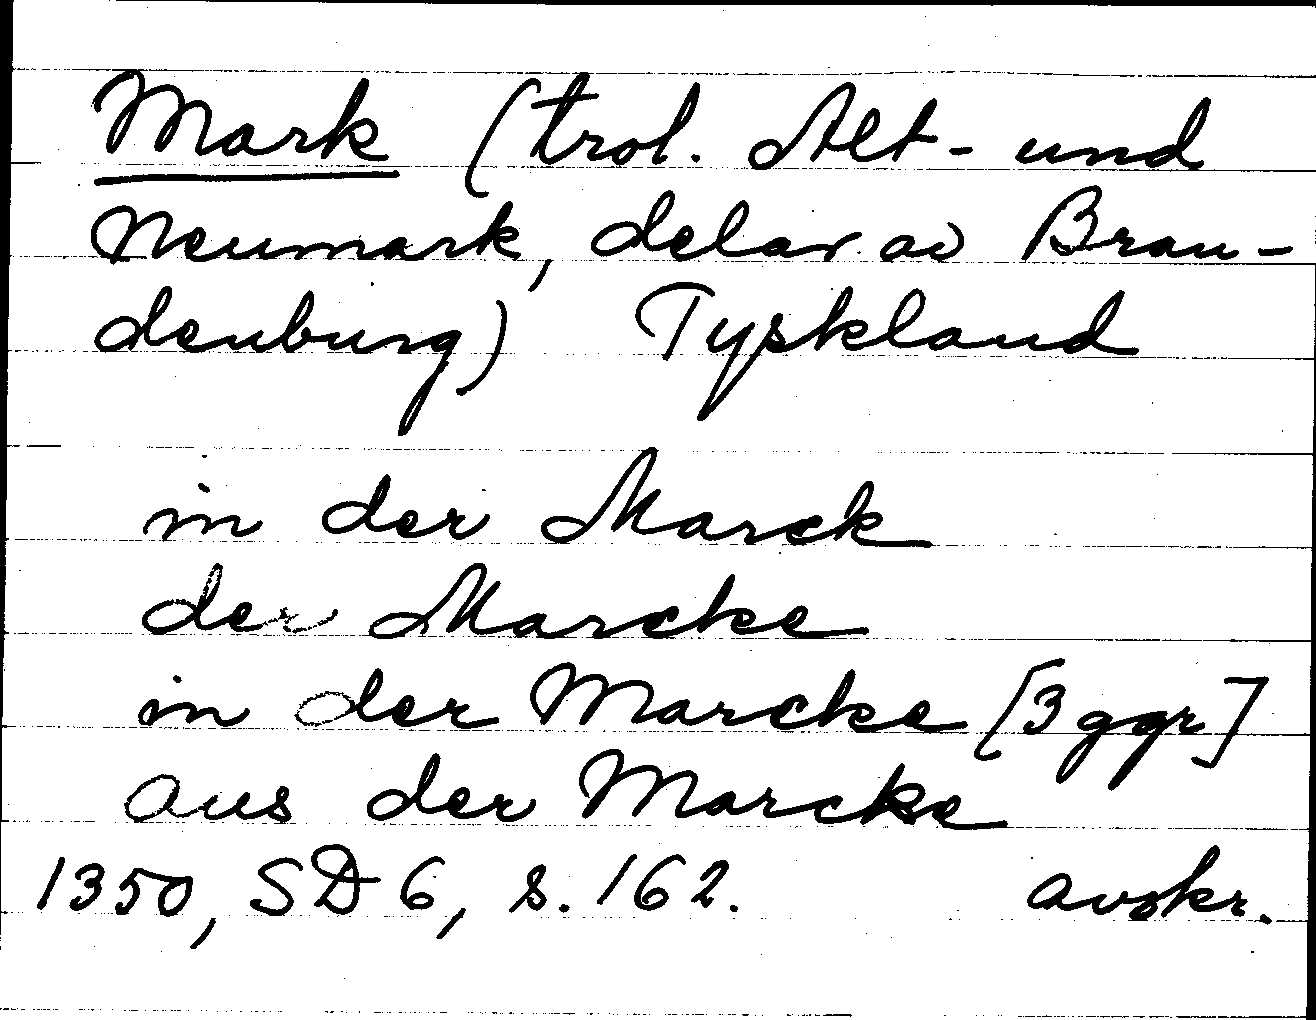 Mark (trol. Alt- und
Neumark, delar av Bran-
denburg) Tyskland
in der Marck
der Marcke
in der Marcke [3 ggr]
aus der Marcke
1350, SD 6, s. 162. avskr.